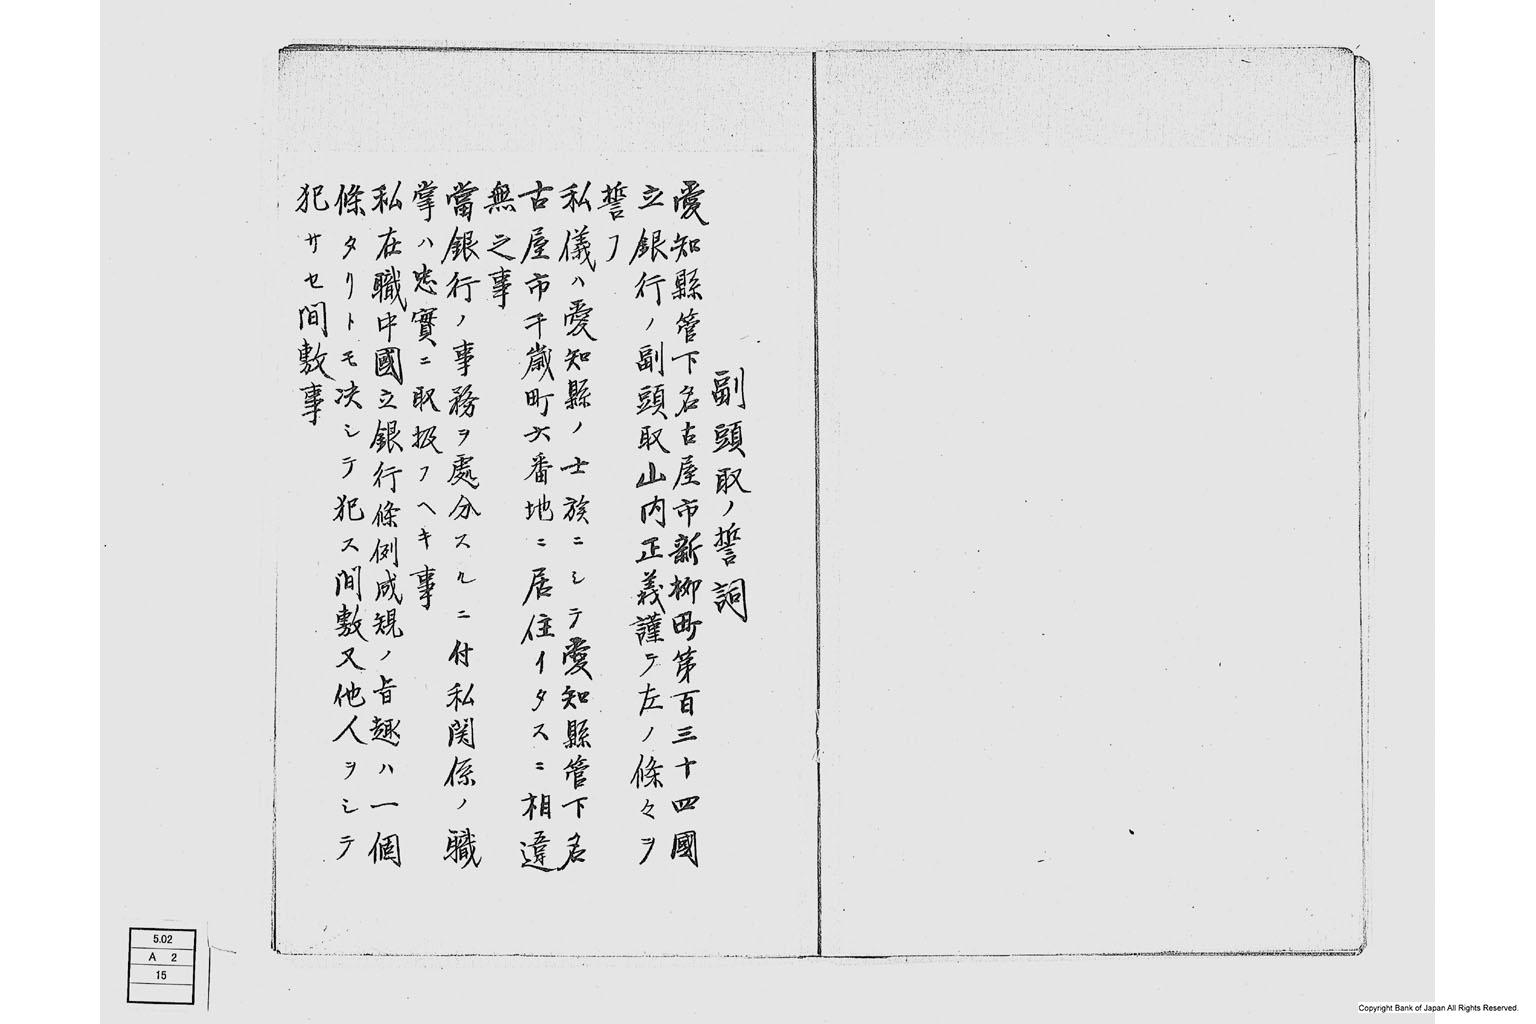 副頭取ノ誓詞
愛知縣管下名古屋市新柳町第百三十四國
立銀行ノ副頭取山内正義謹テ左ノ條々ヲ
誓フ
私儀ハ愛知縣ノ士族ニシテ愛知縣管下名
古屋市千歳町六番地ニ居住イタスニ相違
無之事
當銀行ノ事務ヲ處分スルニ付私関係ノ職
掌ハ忠實ニ取扱フヘキ事
私在職中國立銀行條例成規ノ旨趣ハ一個
條タリトモ决シテ犯ス間敷又他人ヲシテ
犯サセ間敷事
5.02
A 2
15
Copyright Bank of Japan All Rights Reserved.